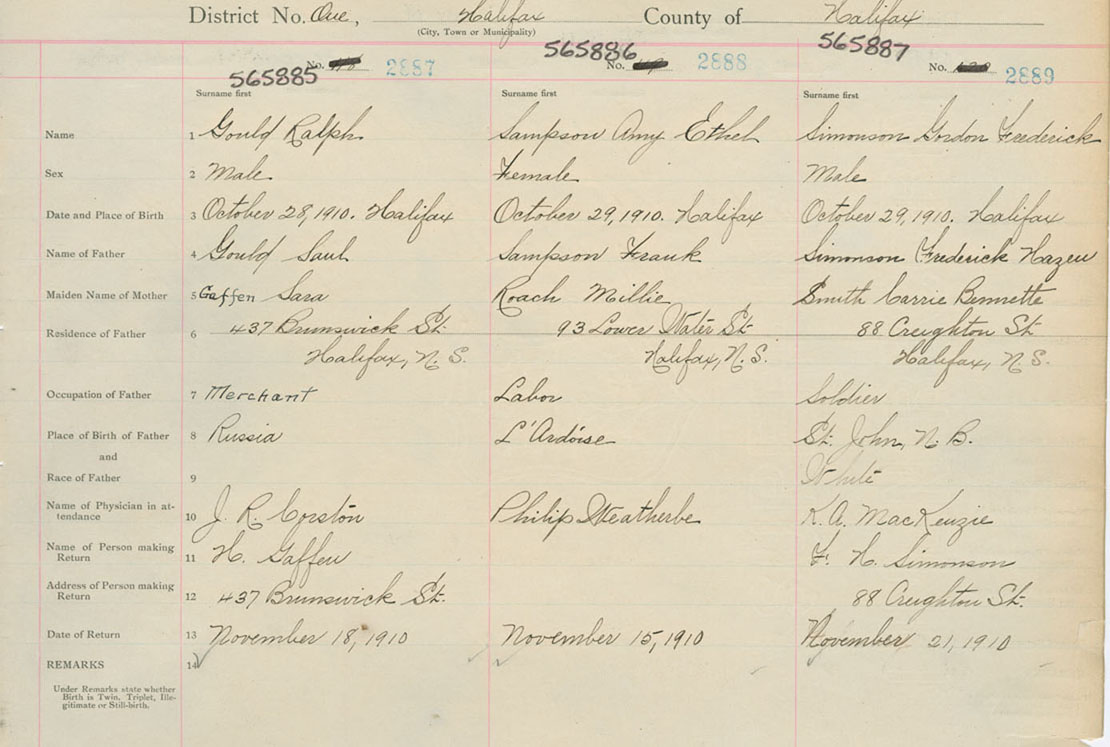 District No. One, Halifax County of Halifax
(City, Town or Municipality)
565885 No. 2887 565886 No. 2888 565887 No. 2889
Surname first Surname first Surname first
Name 1 Gould Ralph Sampson Amy Ethel Simonson Gordon Frederick
Sex 2 Male Female Male
Date and Place of Birth 3 October 28, 1910. Halifax October 29, 1910. Halifax October 29, 1910. Halifax
Name of Father 4 Gould Saul Sampson Frank Simonson Frederick Hazen
Maiden Name of Mother 5 Gaffen Sara Roach Millie Smith Carrie Bennette
Residence of Father 6 437 Brunswick St. 93 Lower Water St. 88 Creighton St.
Halifax, N. S. Halifax, N. S. Halifax, N. S.
Occupation of Father 7 Merchant Labor Soldier
Place of Birth of Father 8 Russia L'Ardoise St. John, N. B.
and
Race of Father 9 White
Name of Physician in at-
tendance 10 J. R. Corston Philip Weatherbe K. A. MacKenzie
Name of Person making
Return 11 H. Gaffen F. H. Simonson
Address of Person making
Return 12 437 Brunswick St. 88 Creighton St.
Date of Return 13 November 18, 1910 November 15, 1910 November 21, 1910
REMARKS 14
Under Remarks state whether
Birth is Twin, Triplet, Ille-
gitimate or Still-birth.